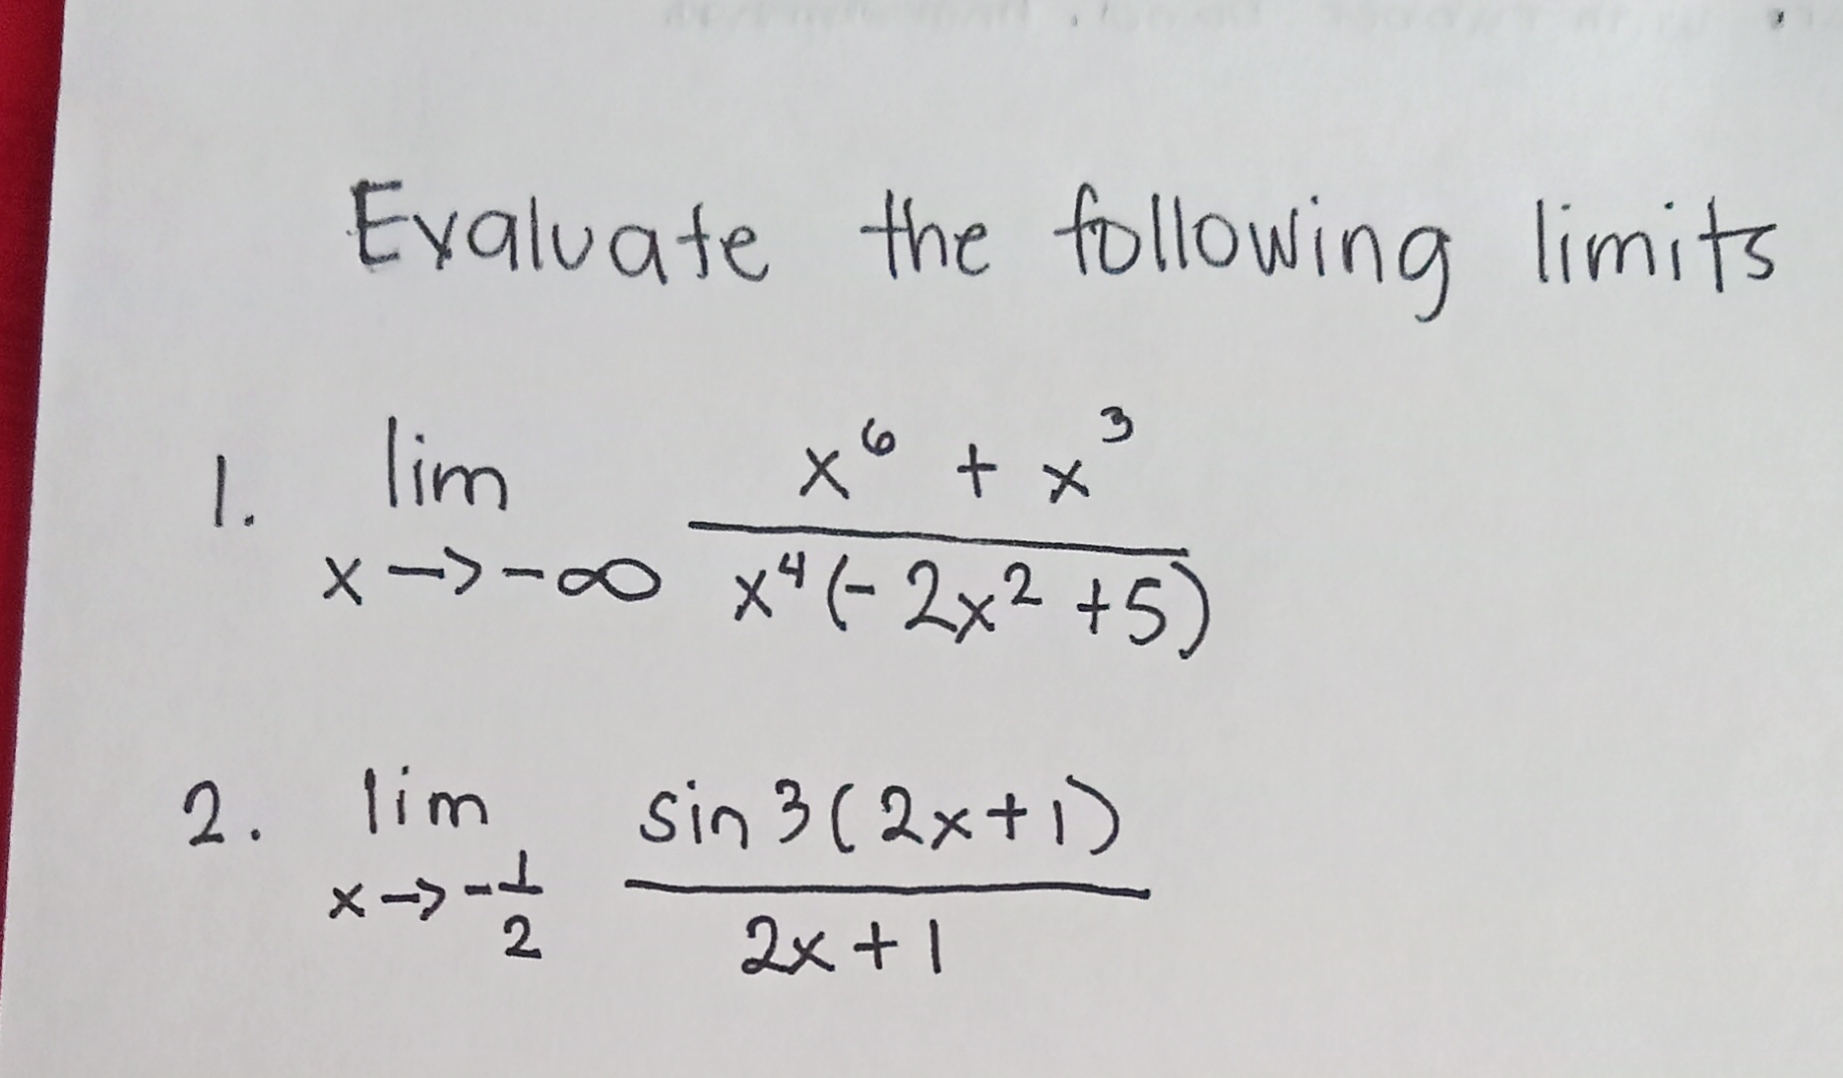 Evaluate the following limits
1. lim x→-∞ (x⁶ + x³)/(x⁴(-2x² +5))
2. lim x→-1/2 (sin 3(2x+1))/(2x+1)